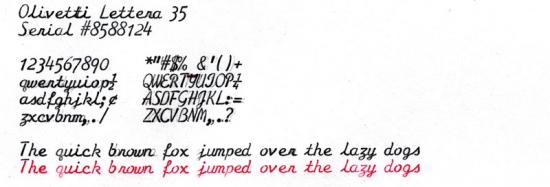 Olivetti Lettera 35
Serial #8588124
1234567890 *"#$% &'()+
qwertyuiop½ QWERTYUIOP¼
asdfghjkl;¢ ASDFGHJKL:=
zxcvbnm,./ ZXCVBNM,.?
The quick brown fox jumped over the lazy dogs
The quick brown fox jumped over the lazy dogs